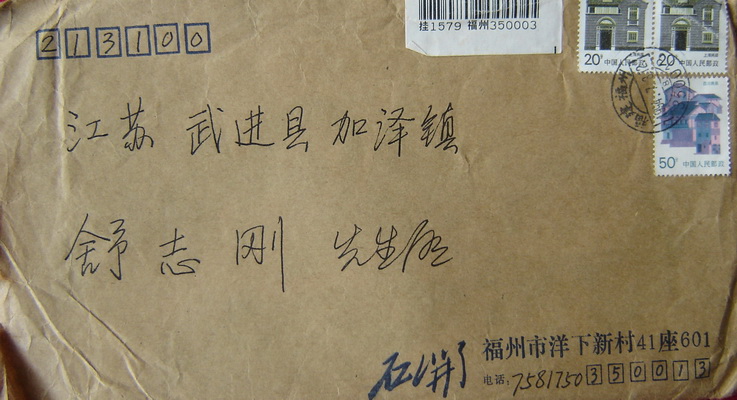 213100
桂1579 福州350003
20分 中国人民邮政
20分 中国人民邮政
50分 中国人民邮政
江苏 武进县 加泽镇
舒志刚 先生启
福州市洋下新村41座601
电话:7581750 350013